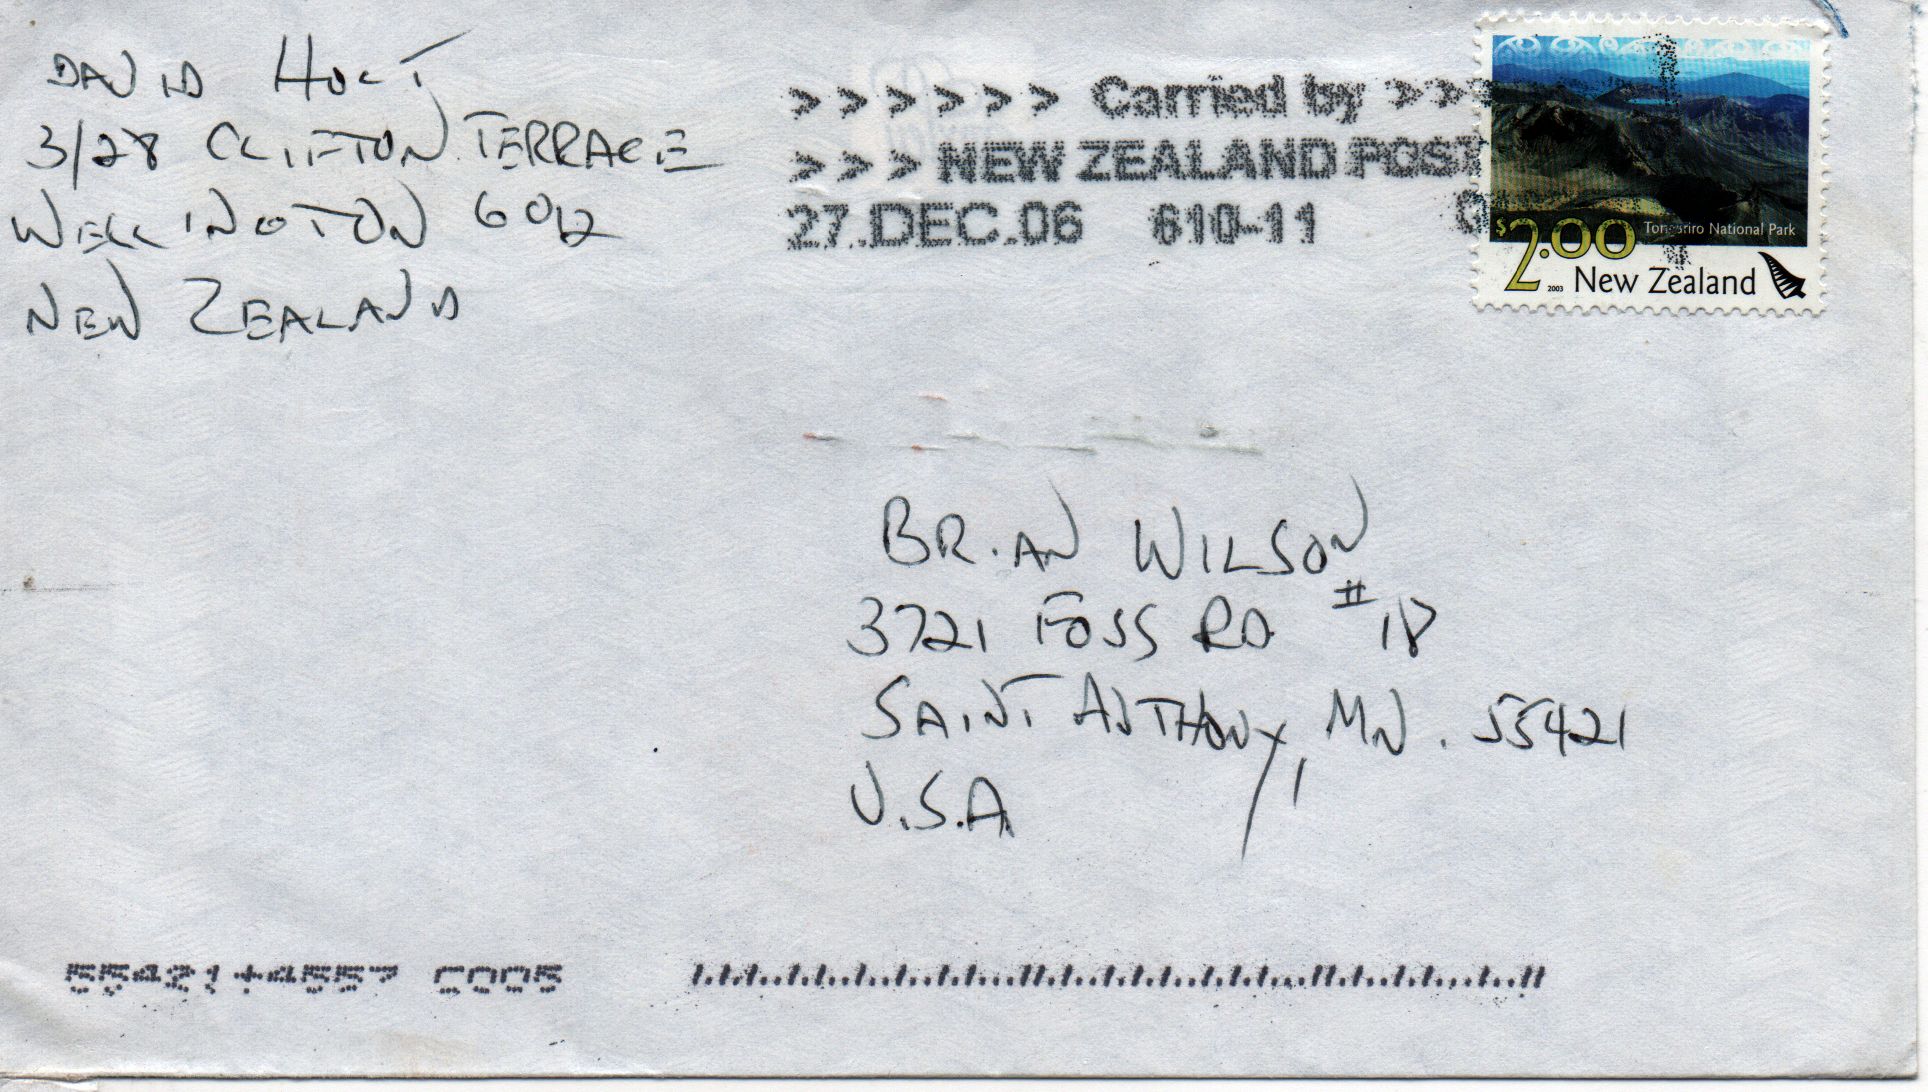 DAVID HOLT
3/28 CLIFTON TERRACE
WELLINGTON 6012
NEW ZEALAND
> > > > > > Carried by > > >
> > > NEW ZEALAND POST
27.DEC.06 610-11
$2.00
Tongariro National Park
2003 New Zealand
BRIAN WILSON
3721 FOSS RD #18
SAINT ANTHONY, MN. 55421
U.S.A
55421+4557 C005